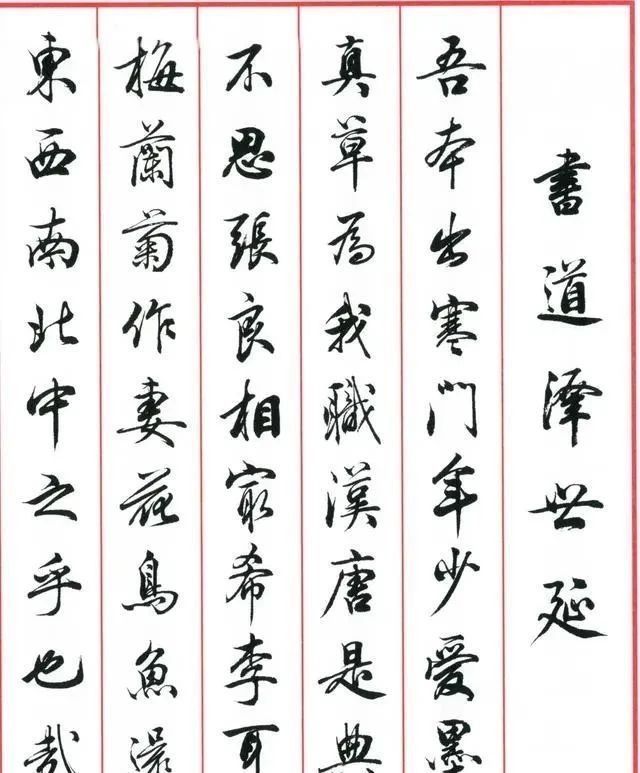 書道澤世延
吾本出寒門年少愛墨
真草為我職漢唐是典
不思張良相寂希李耳
梅蘭菊作妻花鳥魚
東西南北中之乎也哉